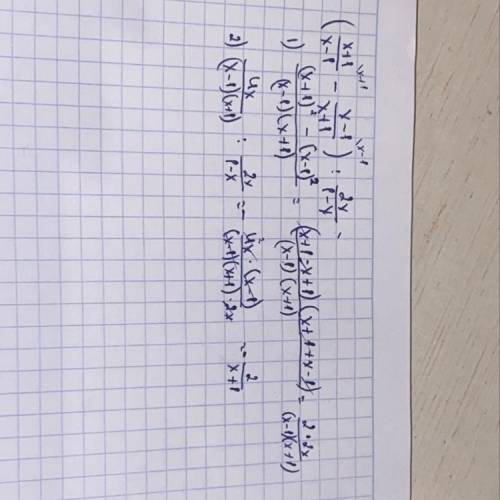 ( \frac{x+1}{x-1}^{\x+1} - \frac{x-1}{x+1}^{\x-1} ) : \frac{2x}{1-x} =
1) \frac{(x+1)^2 - (x-1)^2}{(x-1)(x+1)} = \frac{(x+1-x+1)(x+1+x-1)}{(x-1)(x+1)} = \frac{2·2x}{(x-1)(x+1)}
2) \frac{4x}{(x-1)(x+1)} : \frac{2x}{1-x} = - \frac{4x·(x-1)}{(x-1)(x+1)·2x} = - \frac{2}{x+1}